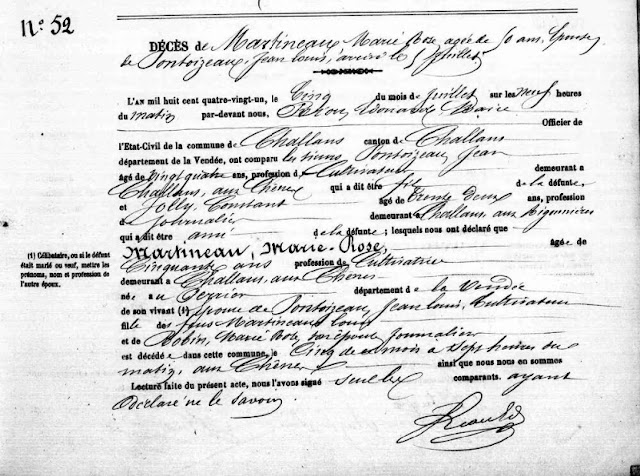 N° 52
DÉCÈS de Martineau Marie Rose, agée de 50 ans, Epouse
de Pontoizeau, Jean Louis, arrivé le 5 Juillet
L'AN mil huit cent quatre-vingt-un, le Cinq du mois de Juillet sur les neuf heures
du matin par-devant nous, Edouard, Maire Officier de
l'Etat-Civil de la commune de Challans canton de Challans
département de la Vendée, ont comparu les sieurs Pontoizeau Jean
âgé de vingt quatre ans, profession de Cultivateur demeurant a
Challans, aux Chênes qui a dit être fils de la défunte
et Jolly, Constant âgé de trente deux ans, profession
d Journalier demeurant a Challans, aux
qui a dit être ami de la défunte ; lesquels nous ont déclaré que
Martineau, Marie-Rose, âgée de
Cinquante ans profession de Cultivatrice
demeurant a Challans, aux Chênes
née au Perrier département de la Vendée
de son vivant (1) épouse de Pontoizeau, Jean Louis, Cultivateur
fille de feus Martineau Louis
et de Robin, Marie Rose, Journalier
est décédée dans cette commune, le Cinq de ce mois à sept heures du
matin, aux Chênes ainsi que nous nous en sommes
Lecture faite du présent acte, nous l'avons signé seul les comparants ayant
déclaré ne le savoir.
(1) Célibataire, ou si le défunt
était marié ou veuf, mettre les
prénoms, nom et profession de
l'autre époux.